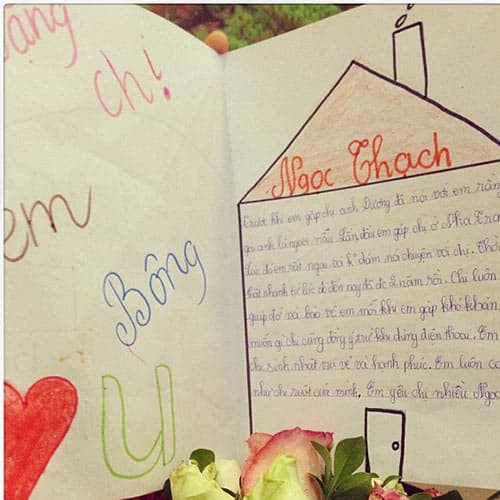 ạng
chị
em
Bông
U
Ngọc Thạch
Trước khi em gặp chị anh Dương đã nói với em rằn
là người mẫu. Lần đầu em gặp chị ở Nha Tra
lúc đó em rất ngại và k dám nói chuyện với chị. Thời
thật nhanh từ lúc đó đến nay đã đc 2 năm rồi. Chị luôn
giúp đỡ và bảo vệ em mỗi khi em gặp khó khăn
muốn gì chị cũng đồng ý trừ khi dùng điện thoại. Em
chị sinh nhật vui vẻ và hạnh phúc. Em luôn co
như chị ruột của mình. Em yêu chị nhiều. Ngọc